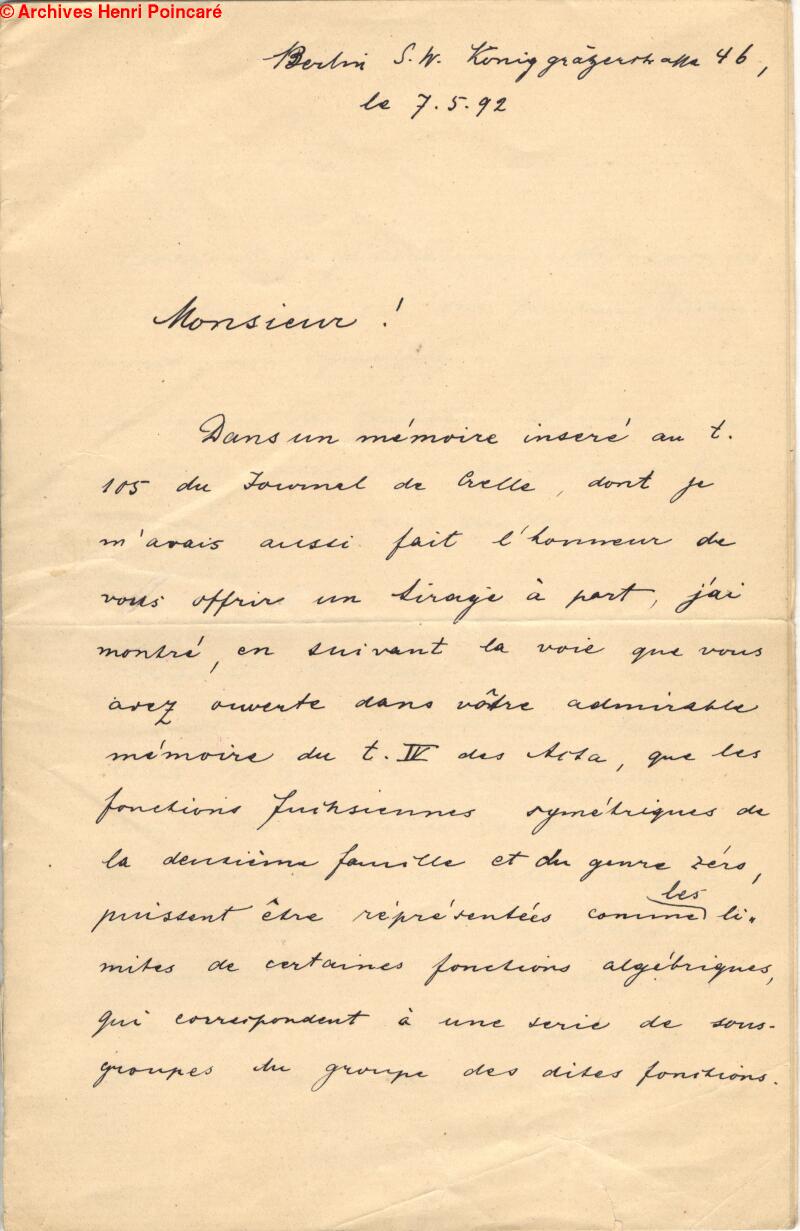 © Archives Henri Poincaré
Berlin S.W. Königgrätzerstrasse 46,
le 7.5.92
Monsieur !
Dans un mémoire inseré au t.
105 du Journal de Crelle, dont je
m'avais aussi fait l'honneur de
vous offrir un tirage à part, j'ai
montré, en suivant la voie que vous
avez ouverte dans vôtre admirable
mémoire du t. IV des Acta, que les
fonctions fuchsiennes symétriques de
la deuxième famille et du genre zéro,
puissent être réprésentées comme les li-
mites de certaines fonctions algébriques,
qui correspondent à une serie de sous-
groupes du groupe des dites fonctions.